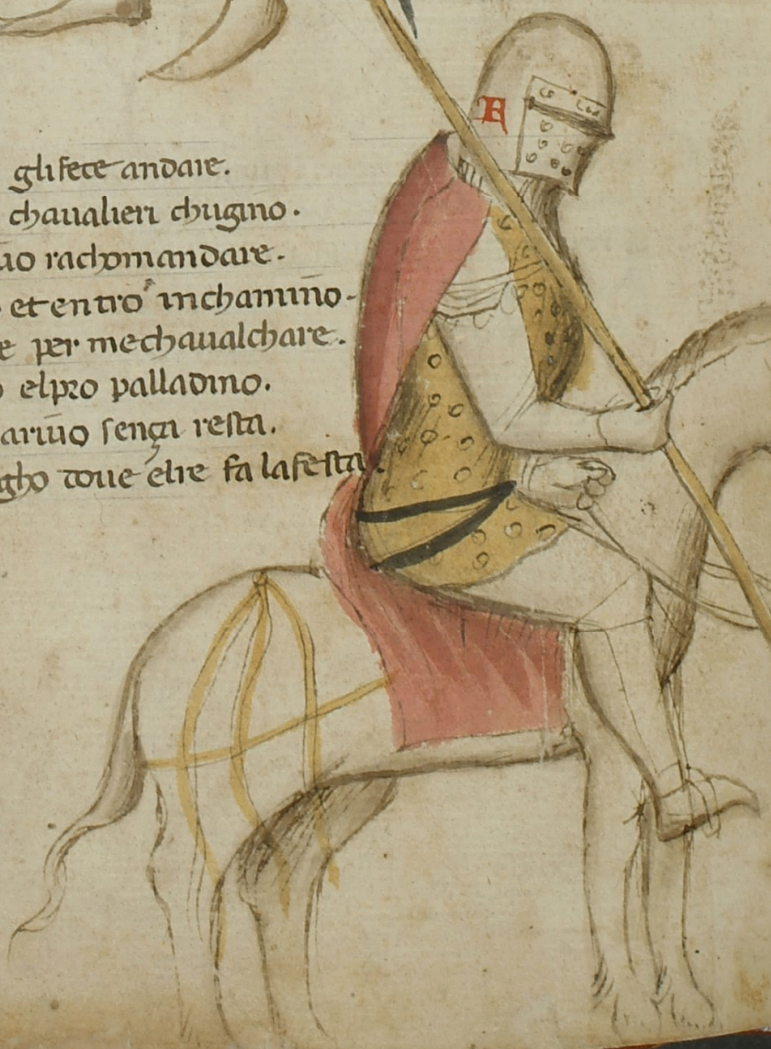 A
gli fece andare.
chaualieri chugino.
uo rachomandare.
et entro inchamino.
e per me chaualchare.
o el pro palladino.
ariuo sença resta.
gho doue elre fa la festa.